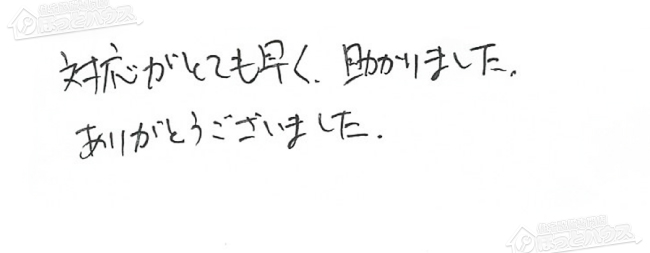 対応がとても早く、助かりました。
ありがとうございました。